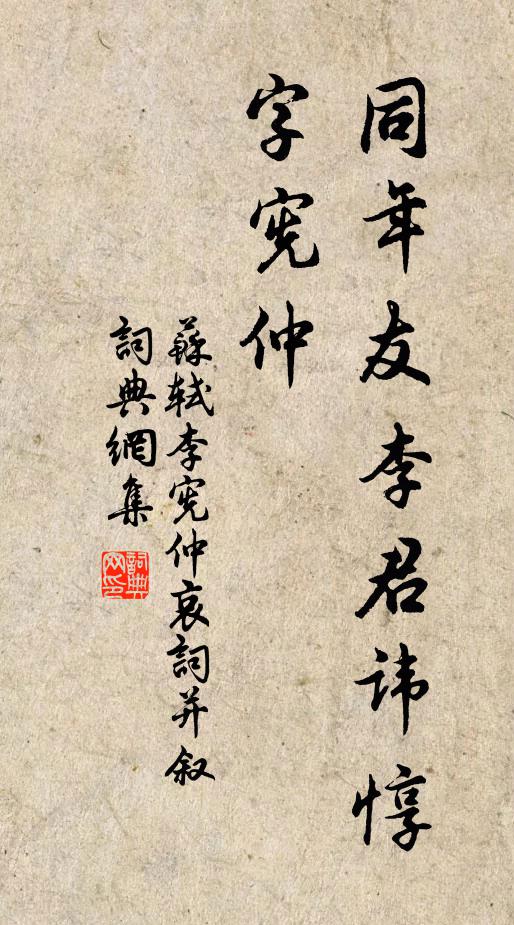 同年友李君諱惇
字宪仲
蘇轼李宪仲哀詞并叙
詞典網集
詞典网印